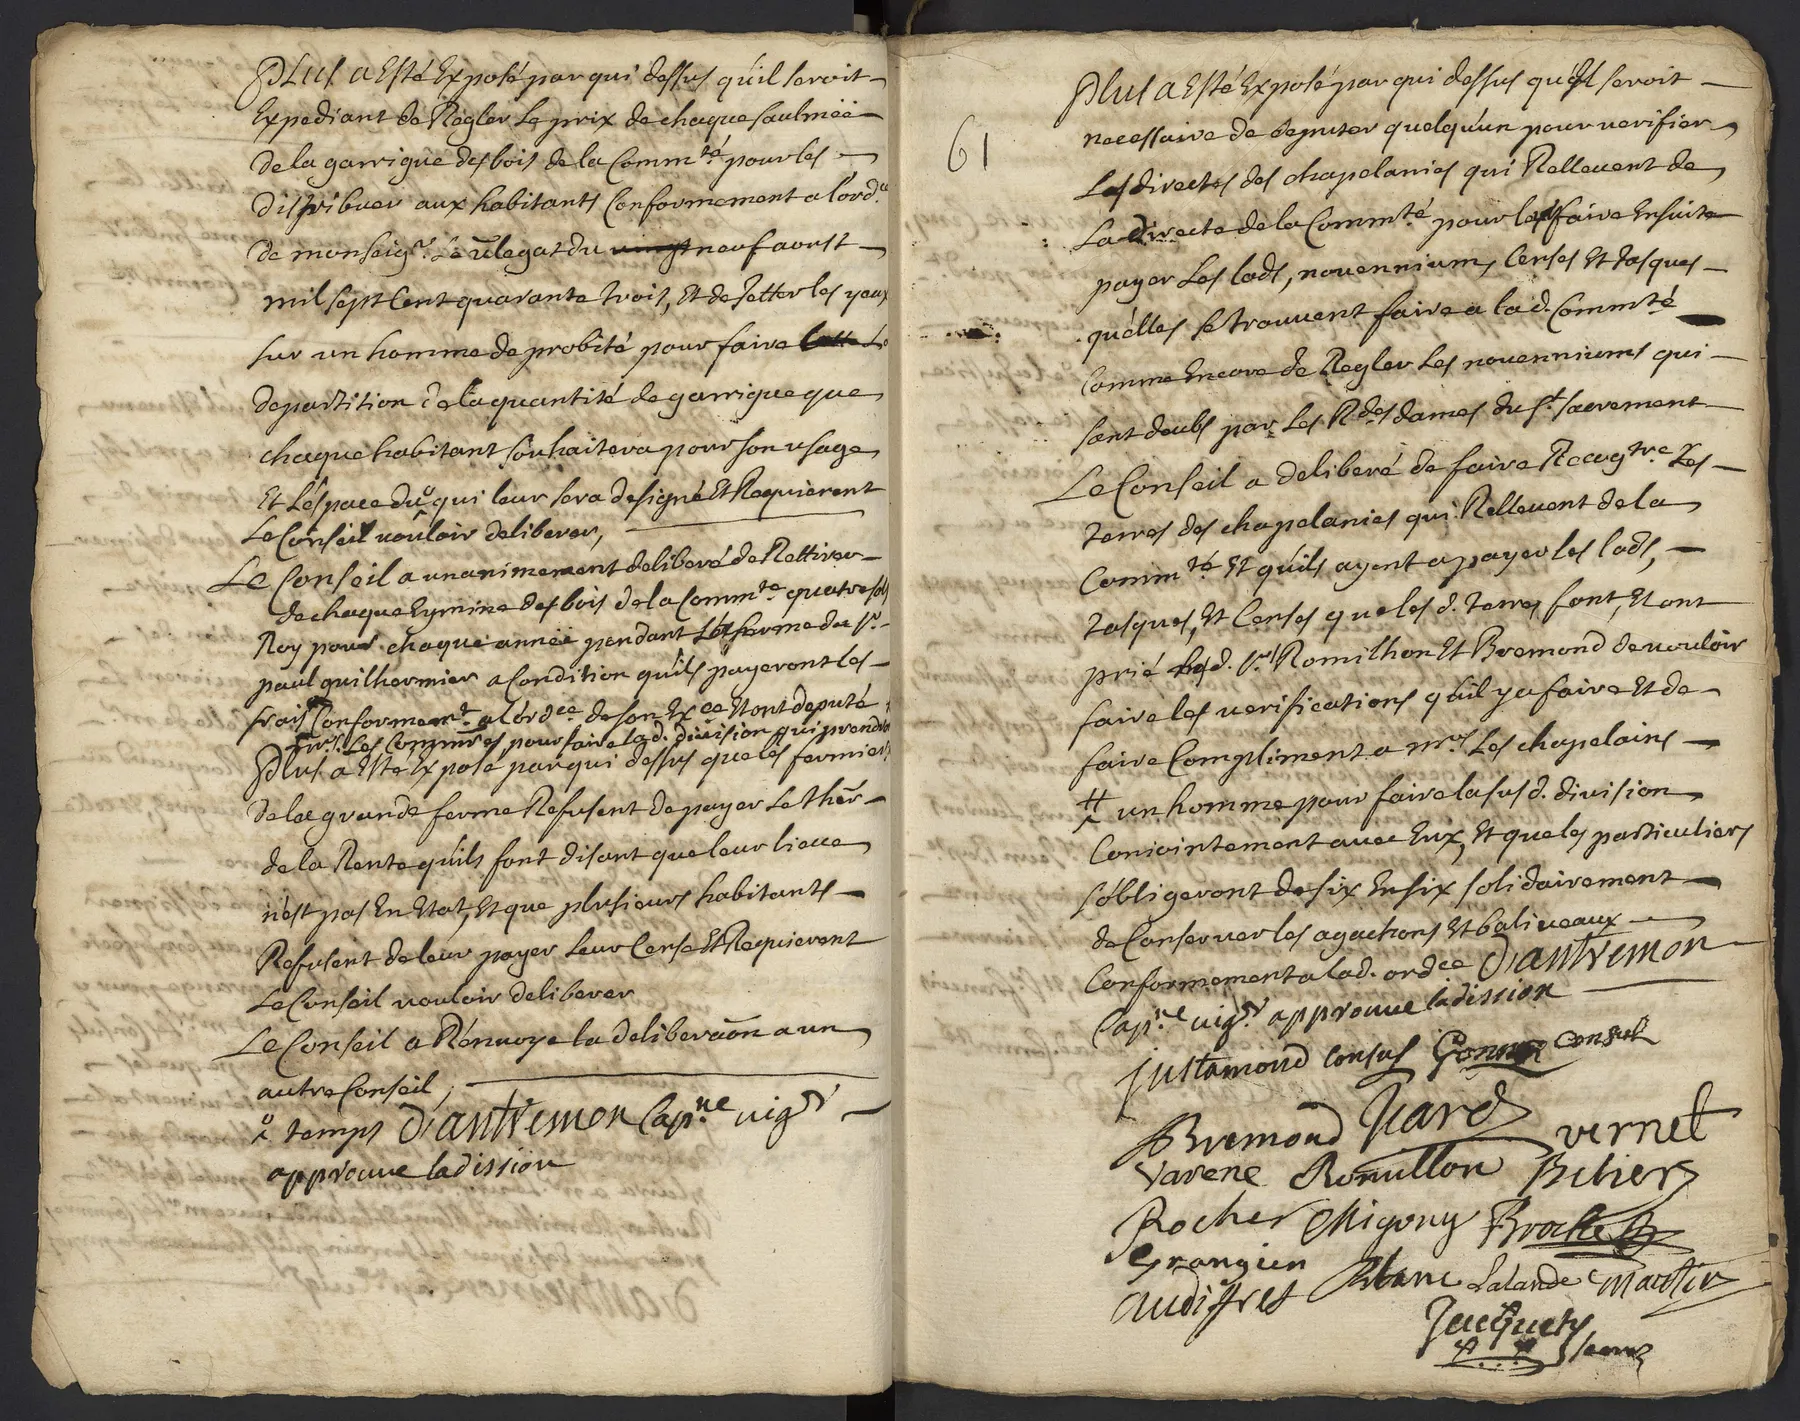 Plus a Esté Exposé par qui dessus quil seroit
Expediant de Regler Le prix de chaque saulméé
de la garrigue des bois de la Comm.té pour les
distribuer aux habitants Conformement a l'ord.ce
de monseig.r Le vîlegat du vingt neuf aoust
mil sept Cent quarante trois, Et de Jetter les yeux
sur un homme de probité pour faire
departition de la quantité de garrigue que
chaque habitant souhaitera pour son usage
Et Léspace du o qui leur sera designé Et Requierent
Le Conseil vouloir deliberer,
Le Conseil a unanimement deliberé de Rettirer
de chaque Eymine des bois de la Comm.te quatre sols
Roy pour chaque annéé pendant La ferme du s.r
paul guilhermier a Condition quils payeront les
frais Conformem.t a l'ord.ce de son Ex.ce Et ont deputé
Les Comm.res pour faire lad. division qui prendront
Plus a Esté Exposé par qui dessus que les fermiers
de la grande ferme Refusent de payer Le
de la Rente quils font disant que leur lieue
n'est pas En Etat, Et que plusieurs habitants
Refusent de leur payer leur Cense Et Requierent
Le Conseil vouloir deliberer
Le Conseil a Rénvoyé la deliberaôn a un
autre Conseil,
o temps D'antremon Cap.ne vig.r
approuve ladission
61
Plus a Esté Exposé par qui dessus quil seroit
necessaire de deputer quelqu'un pour verifier
Les directes des chapelanies qui Rellevent de
La directe de la Comm.té pour les faire Ensuite
payer Les lods, novennium, Censes Et tasques
quélles se trouvent faire a lad. Comm.té
Comme Encore de Regler Les novenniums qui
sont deubs par Les R.des dames du s.t sacrement
Le Conseil a deliberé de faire Recog.tre Les
terres des chapelanies qui Rellevent de la
Comm.té Et quils ayent a payer les lods,
tasques, Et Censes que les d. terres font, Et ont
prié lesd. s.rs Romilhon Et Bremond de vouloir
faire les verifications quil y a faire Et de
faire Compliment a m.rs Les chapelains
‡ un homme pour faire la susd. division
Conjointement avec Eux, Et que les particuliers
s'obligeront de six En six solidairement
de Conserver les agachons Et baliveaux
Conformement a lad. ord.ce D'antremon
Cap.ne vig.r approuve ladission
justamond Consul Consul
Bremond Vernet
Varene Romillon
Rocher Migony
Grangier Blanc Lalande Martin
Audiffret